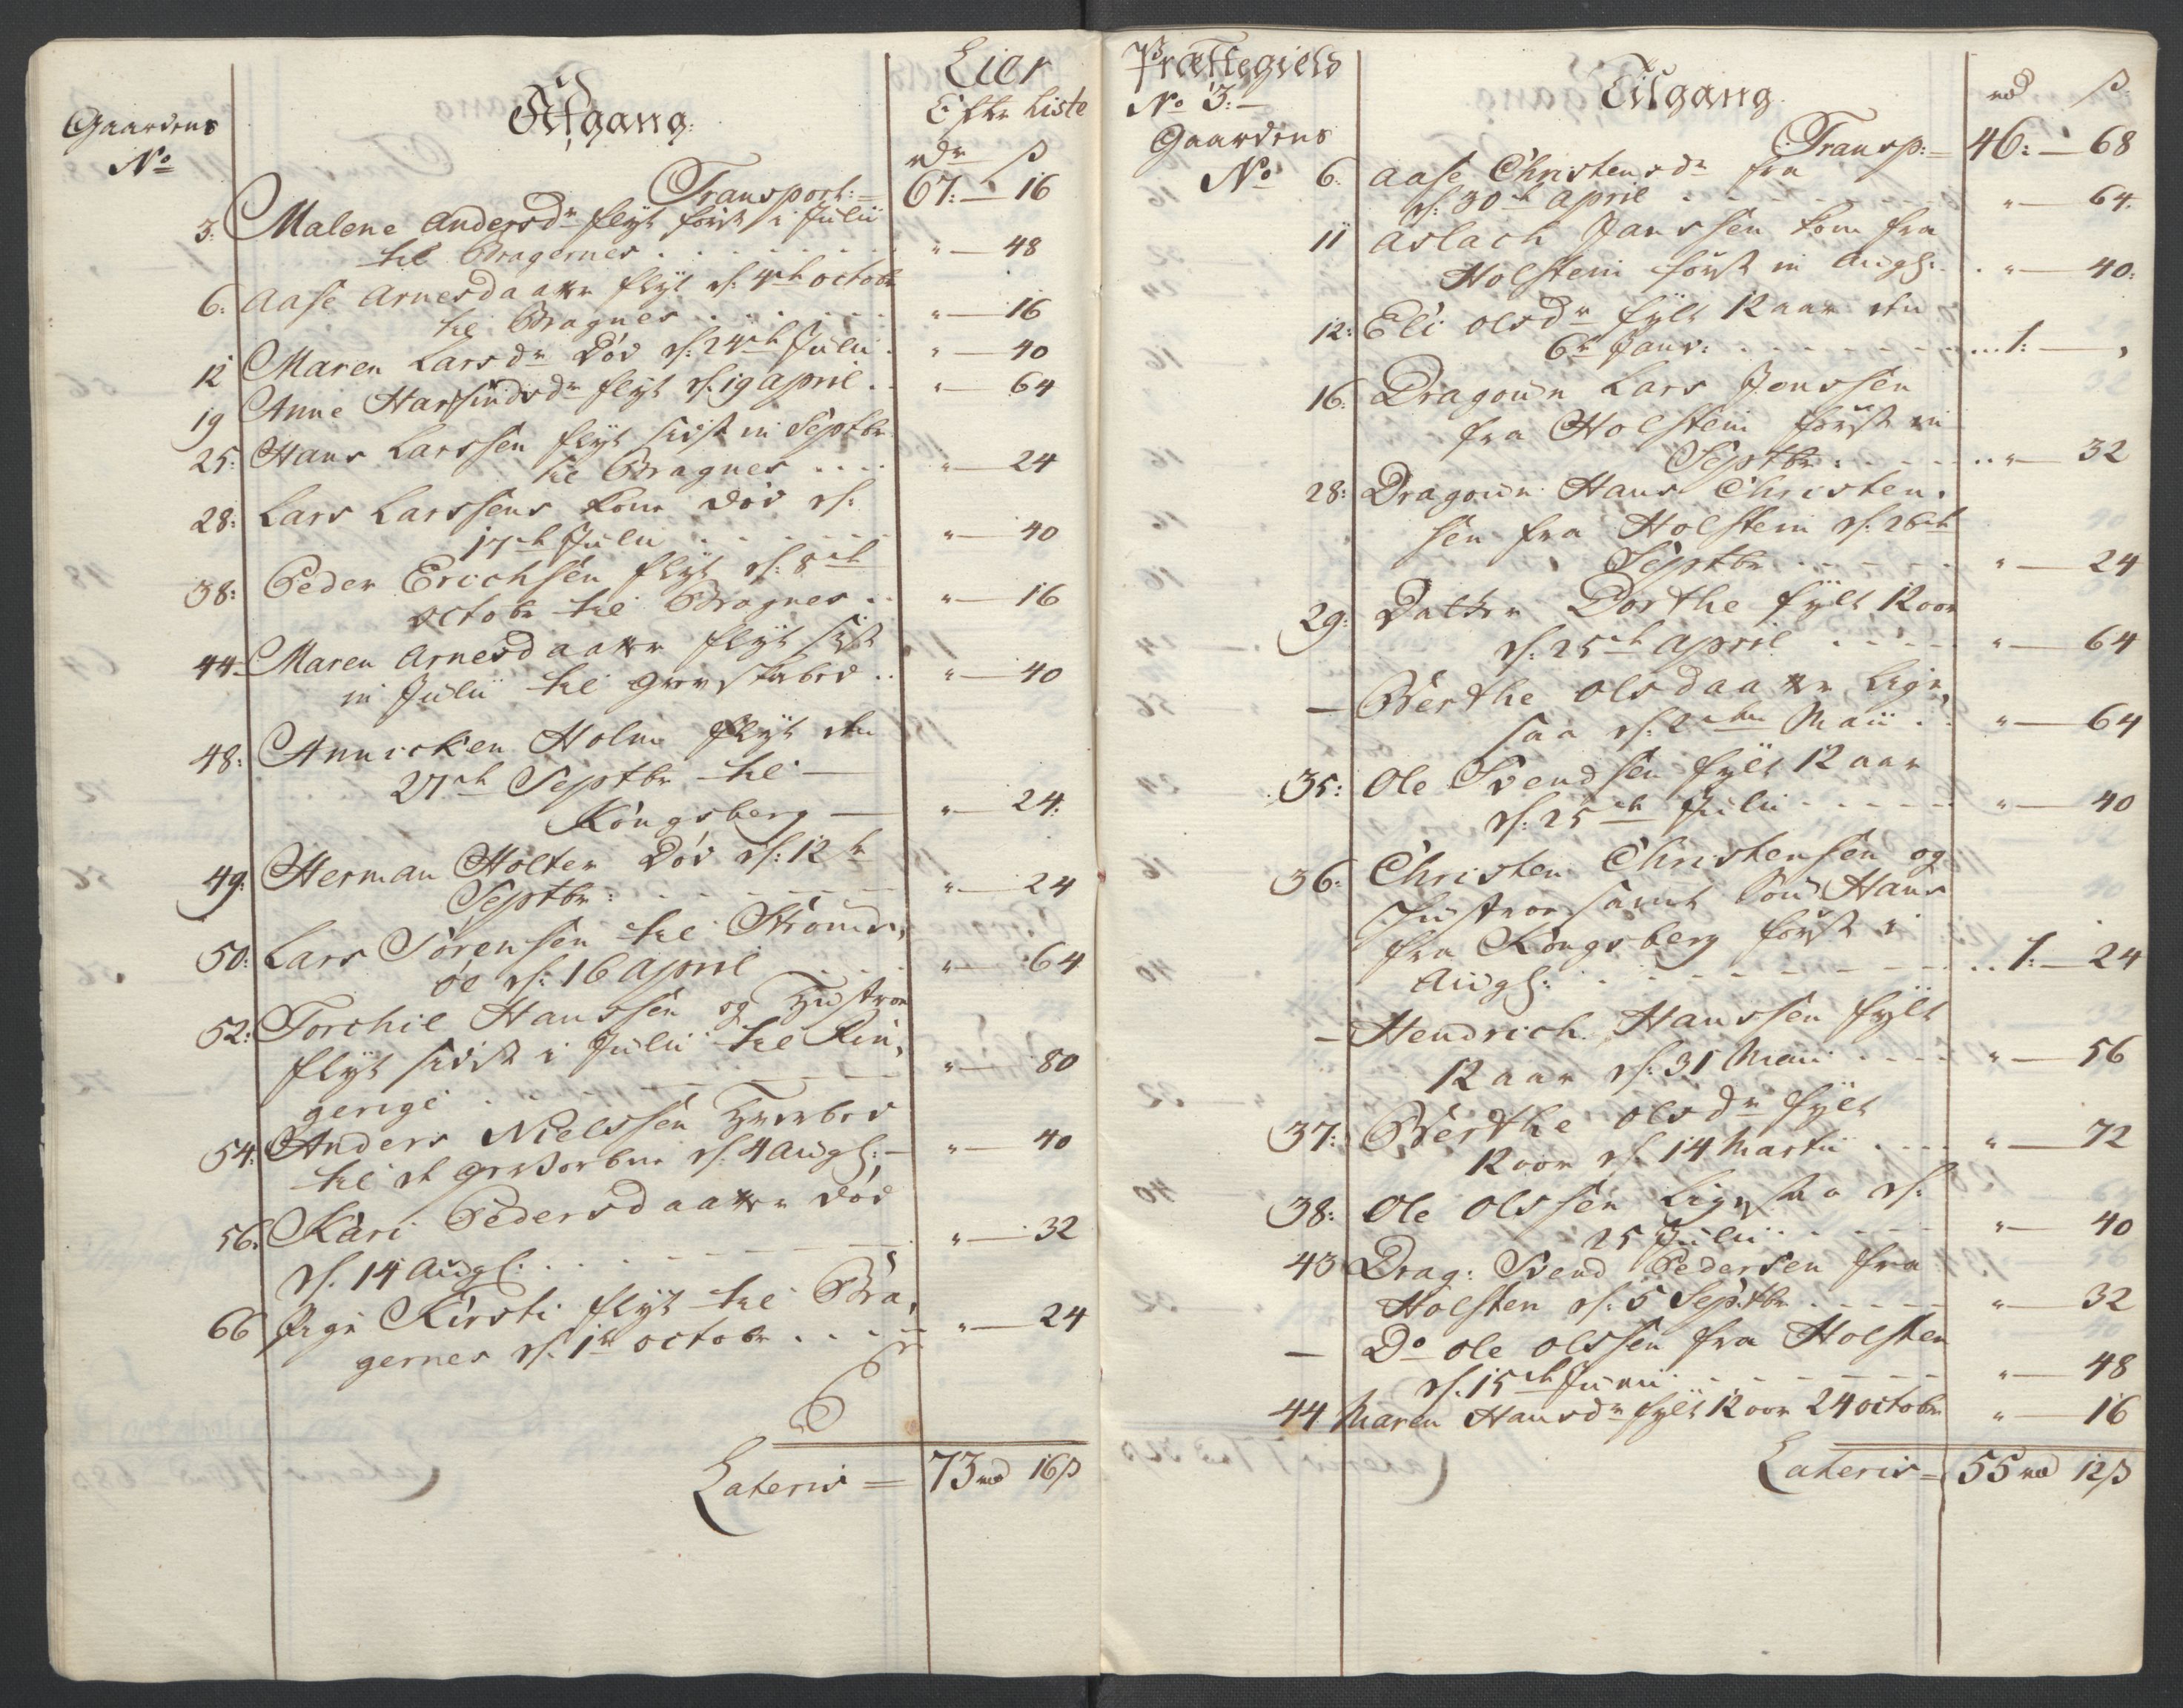 Eier
Gaardens
No
Afgang:
Efter Liste
rdr ß
Transport:= 67:— 16
3: Malene Andersdr flyt først i Julii
til Bragernes . . . . . "— 48
6: Aase Arnesdaatter flyt d: 4de octobr
til Bragnes . . . . . "— 16
12 Maren Larsdr død d: 24de Julii . "— 40
19 Anne dr flyt d: 19 april . . "— 64
25: Hans Larssen flyt sidst in Septbr
til Bragnes . . . . "— 24
28: Lars Larssens Kone død d:
17de Julii . . . . . "— 40
38: Peder Erichsen flyt d: 8de
octobr til Bragnes . . "— 16
44- Maren Arnesdaatter flyt sidst
in Julii til Grevskabed . . "— 40
48: Annicken Holm flyt den
27de Septbr til —
Kongsberg — "— 24:
49: Herman Holter død d: 12te
Septbr: . . . . . "— 24
50: Lars Sørensen til Strøms,
øe d: 16 april . . . . "— 64
52: Torchil Hanssen og Hustroe
flyt sidst i Julii til Rin, "— 80
gerige . . . . .
54: Anders Nielssen
til d: 4 Augs:— "— 40
56: Kari Pedersdaatter død
d. 14 Augs: . . . . . "— 32
66 Pige Kirsti flyt til Bra,
gernes d: 1te octobr . . . . "— 24
Lateris = 73 rd 16 ß
Prættegield
No 3:—
Gaardens
No
Tilgang
rd ß
Transp:= 46:— 68
6: Aase Christensdr fra
d: 30te April . . . . . "— 64.
11 Aslach Janssen kom fra
Holsteni først in Augs: . "— 40:
12: Eli olsdr fylt 12 aar den
6te Janr: . . . . . . 1:— ,
16: Dragoun Lars Jonssen
fra Holsteni først in
Septbr: . . . . . "— 32
28: Dragoun Hans Christen,
sen fra Holstein d: 26de
Septbr . . . . . "— 24
29: Datter Dorthe fylt 12 aar
d: 25de April . . . . "— 64
— Berthe olsdaatter lige,
saa d: 2den Maii . . "— 64
35: Ole Svendsen fylt 12 aar
d: 25de Julii . . . . . "— 40
36: Christen Christensen og
Hustroe samt Søn Hans
fra Kongsberg først i
Augs: . . . . . . . 1:— 24
— Hendrich Hanssen fylt
12 aar d: 31 Maii . . . . "— 56
37: Berthe olsdr fylt
12 aar d: 14 Martii . . . . "— 72
38: Ole olssen ligesaa d:
25 Julii . . . . . "— 40
43 Drag: Svend Pedersen fra
Holsten d: 5 Septbr . . . . "— 32
— Do ole olssen fra Holsten
d: 15de Junii . . . . . "— 48
44 Maren Hansdr fylt 12 aar 24 octobr " 16
Lateris = 55 rd 12 ß